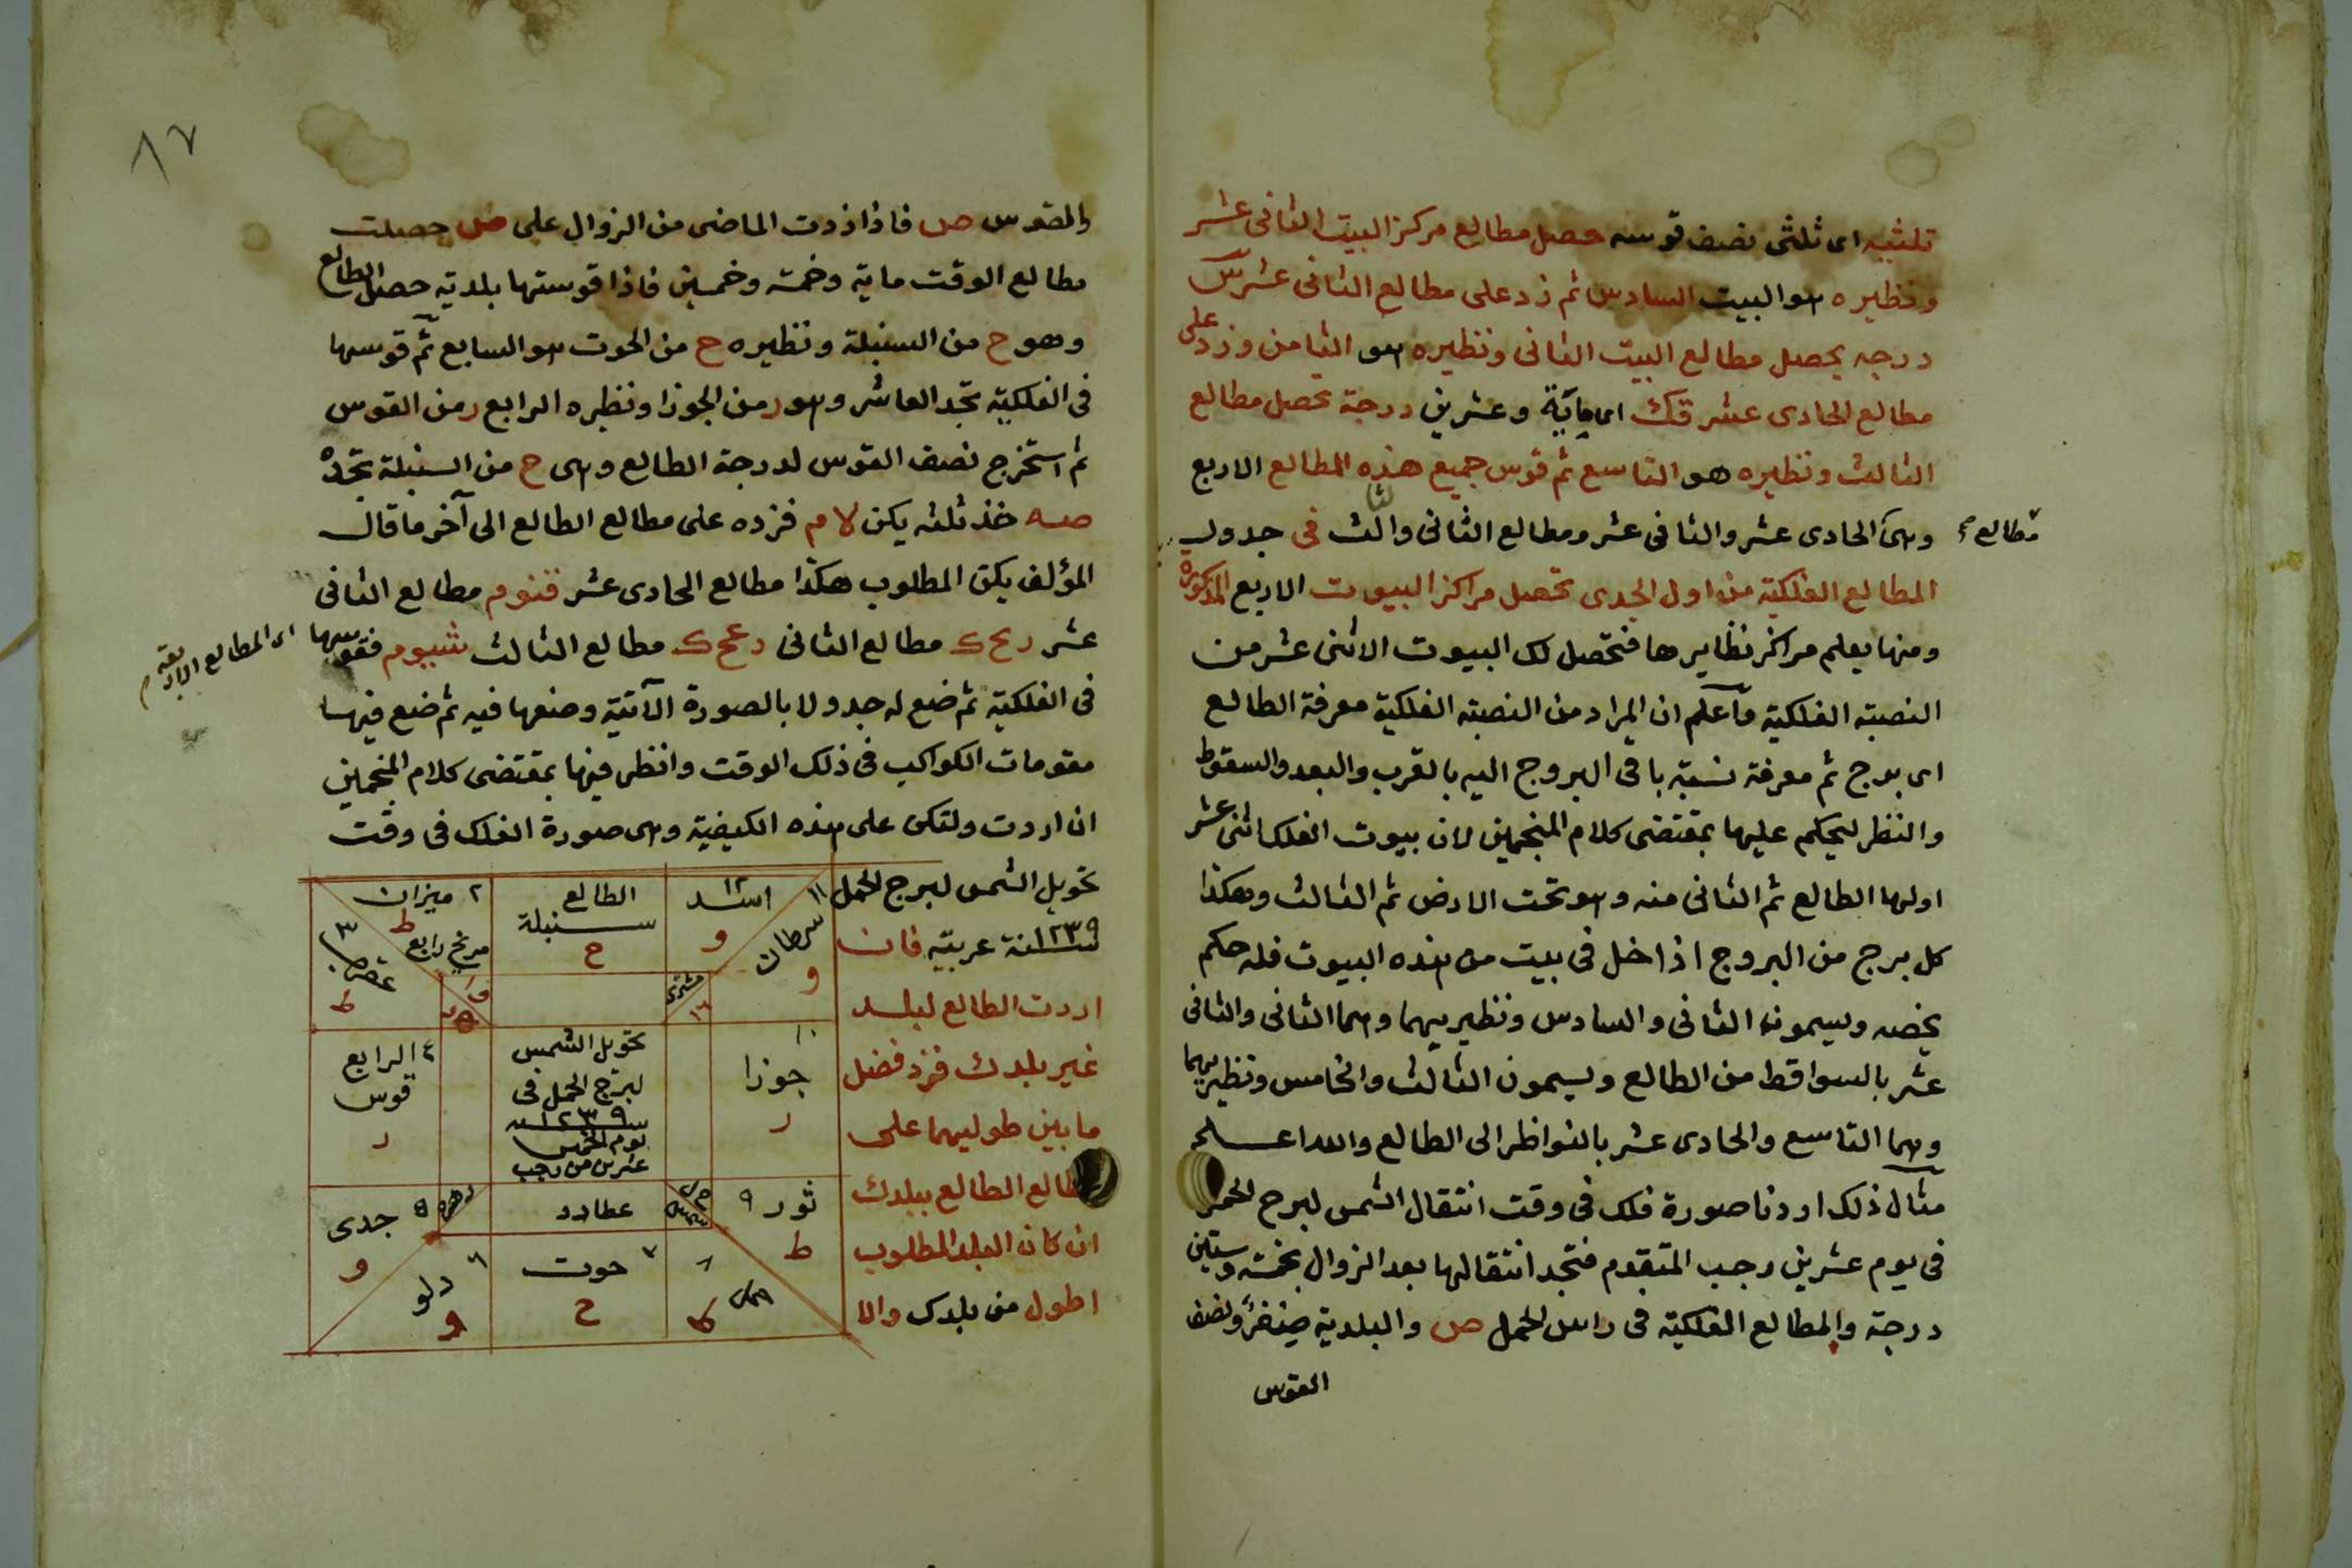 ثلثيه اى ثلثى نصف قوسه حصل مطالع مركز البيت الثانى عشر
ونظيره هو البيت السادس ثم زد على مطالع الثانى عشر س
درجه يحصل مطالع البيت الثانى ونظيره هو الثامن وزد على
مطالع الحادى عشر قك اى ماية وعشرين درجة تحصل مطالع
الثالث ونظيره هو التاسع ثم قوس جميع هذه المطالع الاربع
مطالع
وهى الحادى عشر والثانى عشر ومطالع الثانى والثالث فى جدول
المطالع الفلكية من اول الجدى تحصل مراكز البيوت الاربع المذكورة
ومنها يعلم مراكز نظايرها فتحصل لك البيوت الاثنى عشر من
النصبة الفلكية واعلم ان المراد من النصبة الفلكية معرفة الطالع
اى برج ثم معرفة نسبة باقى البروج اليه بالقرب والبعد والسقوط
والنظر ليحكم عليها بمقتضى كلام المنجمين لان بيوت الفلك اثنى عشر
اولها الطالع ثم الثانى منه وهو تحت الارض ثم الثالث وهكذا
كل برج من البروج اذا دخل فى بيت من هذه البيوت فله حكم
يخصه ويسمون الثانى والسادس ونظيريهما وهما الثامن والثانى
عشر بالسواقط من الطالع ويسمون الثالث والخامس ونظيريهما
وهما التاسع والحادى عشر بالنواظر الى الطالع والله اعلم
مثال ذلك اردنا صورة فلك فى وقت انتقال الشمس لبرج الحمل
فى يوم عشرين رجب المتقدم فتجد انتقالها بعد الزوال بخمسة وستين
درجة والمطالع الفلكية فى راس الحمل ص والبلدية ونصف
القوس
٨٧
والقوس ص فاذا زدت الماضى من الزوال على ص حصلت
مطالع الوقت ماية وخمسة وخمسين فاذا قوستها بلدية حصل الطالع
وهو ح من السنبلة ونظيره ح من الحوت هو السابع ثم قوسها
فى الفلكية تجد العاشر وهو ر من الجوزا ونظيره الرابع ر من القوس
ثم استخرج نصف القوس لدرجة الطالع وهى ح من السنبلة تجده
صه خذ ثلثه يكن لا م فزده على مطالع الطالع الى آخر ما قال
المؤلف يكن المطلوب هكذا مطالع الحادى عشر قفوم مطالع الثانى
عشر ريح ك مطالع الثانى رعح ك مطالع الثالث شيوم فقوسها
اى المطالع الاربعة
فى الفلكية ثم ضع له جدولا بالصورة الآتية وضعها فيه ثم ضع فيها
مقومات الكواكب فى ذلك الوقت وانظر فيها بمقتضى كلام المنجمين
ان اردت ولتكن على هذه الكيفية وهى صورة الفلك فى وقت
تحويل الشمس لبرج الحمل
سنة ١٢٣٩ عربية فان
اردت الطالع لبلد
غير بلدك فزد فضل
ما بين طوليهما على
مطالع الطالع ببلدك
ان كان البلد المطلوب
اطول من بلدك والا
١١ سرطان و
١٢ اسد و
الطالع سنبلة ح
٢ ميزان ط
مريخ رابع
٣ عقرب ط
مشترى
١٠ جوزا ر
تحويل الشمس
لبرج الحمل فى
سنة ١٢٣٩
يوم الخميس
عشرين من رجب
٤ الرابع قوس ر
ثور ٩ ط
شمس
عطارد
زهره
٥ جدى و
٨ حمل ط
٧ حوت ح
٦ دلو و